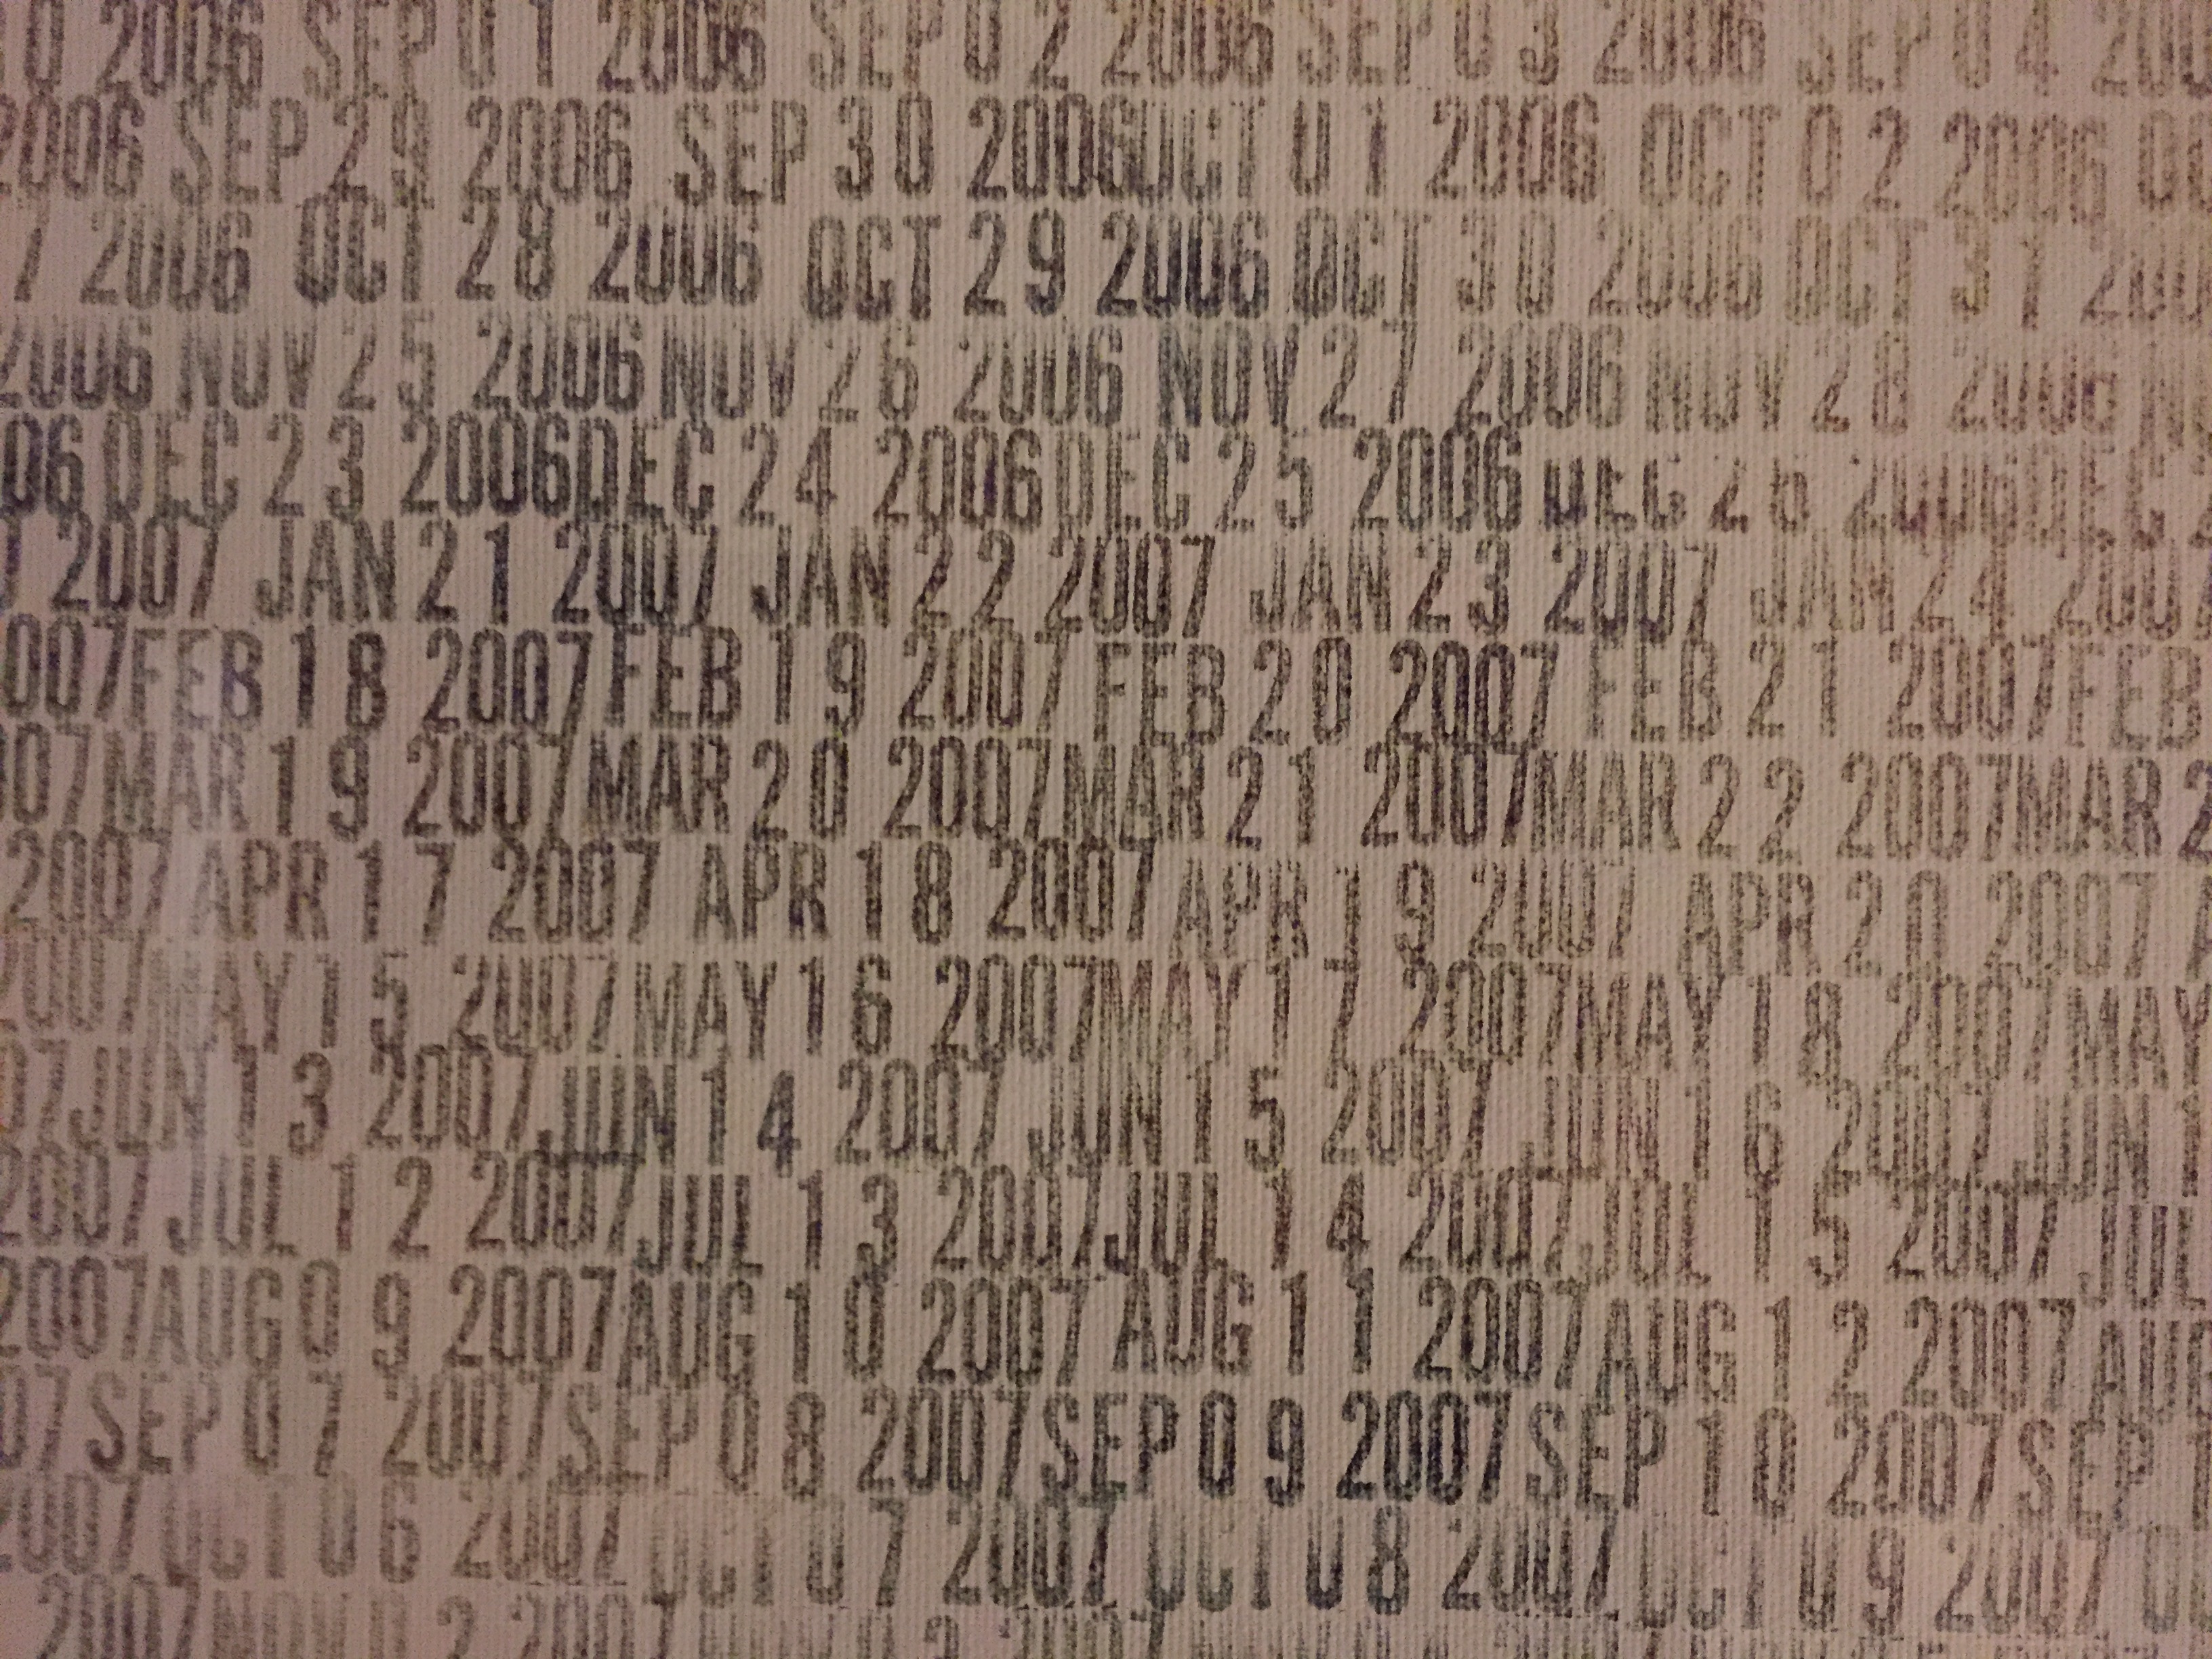 0 2006 SEP 0 1 2006 SEP 0 2 2006 SEP 0 3 2006 SEP 0 4 200
2006 SEP 2 9 2006 SEP 3 0 2006 OCT 0 1 2006 OCT 0 2 2006 OC
7 2006 OCT 2 8 2006 OCT 2 9 2006 OCT 3 0 2006 OCT 3 1 200
2006 NOV 2 5 2006 NOV 2 6 2006 NOV 2 7 2006 NOV 2 8 2006 N
06 DEC 2 3 2006 DEC 2 4 2006 DEC 2 5 2006 DEC 2 6 2006 DEC 2
2007 JAN 2 1 2007 JAN 2 2 2007 JAN 2 3 2007 JAN 2 4 2007
007 FEB 1 8 2007 FEB 1 9 2007 FEB 2 0 2007 FEB 2 1 2007 FEB
007 MAR 1 9 2007 MAR 2 0 2007 MAR 2 1 2007 MAR 2 2 2007 MAR 2
2007 APR 1 7 2007 APR 1 8 2007 APR 1 9 2007 APR 2 0 2007 A
2007 MAY 1 5 2007 MAY 1 6 2007 MAY 1 7 2007 MAY 1 8 2007 MAY
07 JUN 1 3 2007 JUN 1 4 2007 JUN 1 5 2007 JUN 1 6 2007 JUN 1
2007 JUL 1 2 2007 JUL 1 3 2007 JUL 1 4 2007 JUL 1 5 2007 JUL
2007 AUG 0 9 2007 AUG 1 0 2007 AUG 1 1 2007 AUG 1 2 2007 AUG
07 SEP 0 7 2007 SEP 0 8 2007 SEP 0 9 2007 SEP 1 0 2007 SEP 1
2007 OCT 0 6 2007 OCT 0 7 2007 OCT 0 8 2007 OCT 0 9 2007
2007 NOV 0 2 2007 NOV 0 3 2007